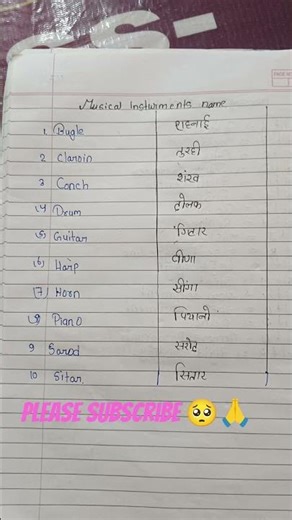 Musical Insturments name
1. Bugle शहनाई
2 Claroin तुरही
3 Conch शंख
(4) Drum ढोलक
(5) Guitar गिटार
(6) Harp वीणा
(7) Horn सींगा
(8) Piano पियानो
9 Sarod सरोद
10 Sitar सितार
PLEASE SUBSCRIBE🥺🙏